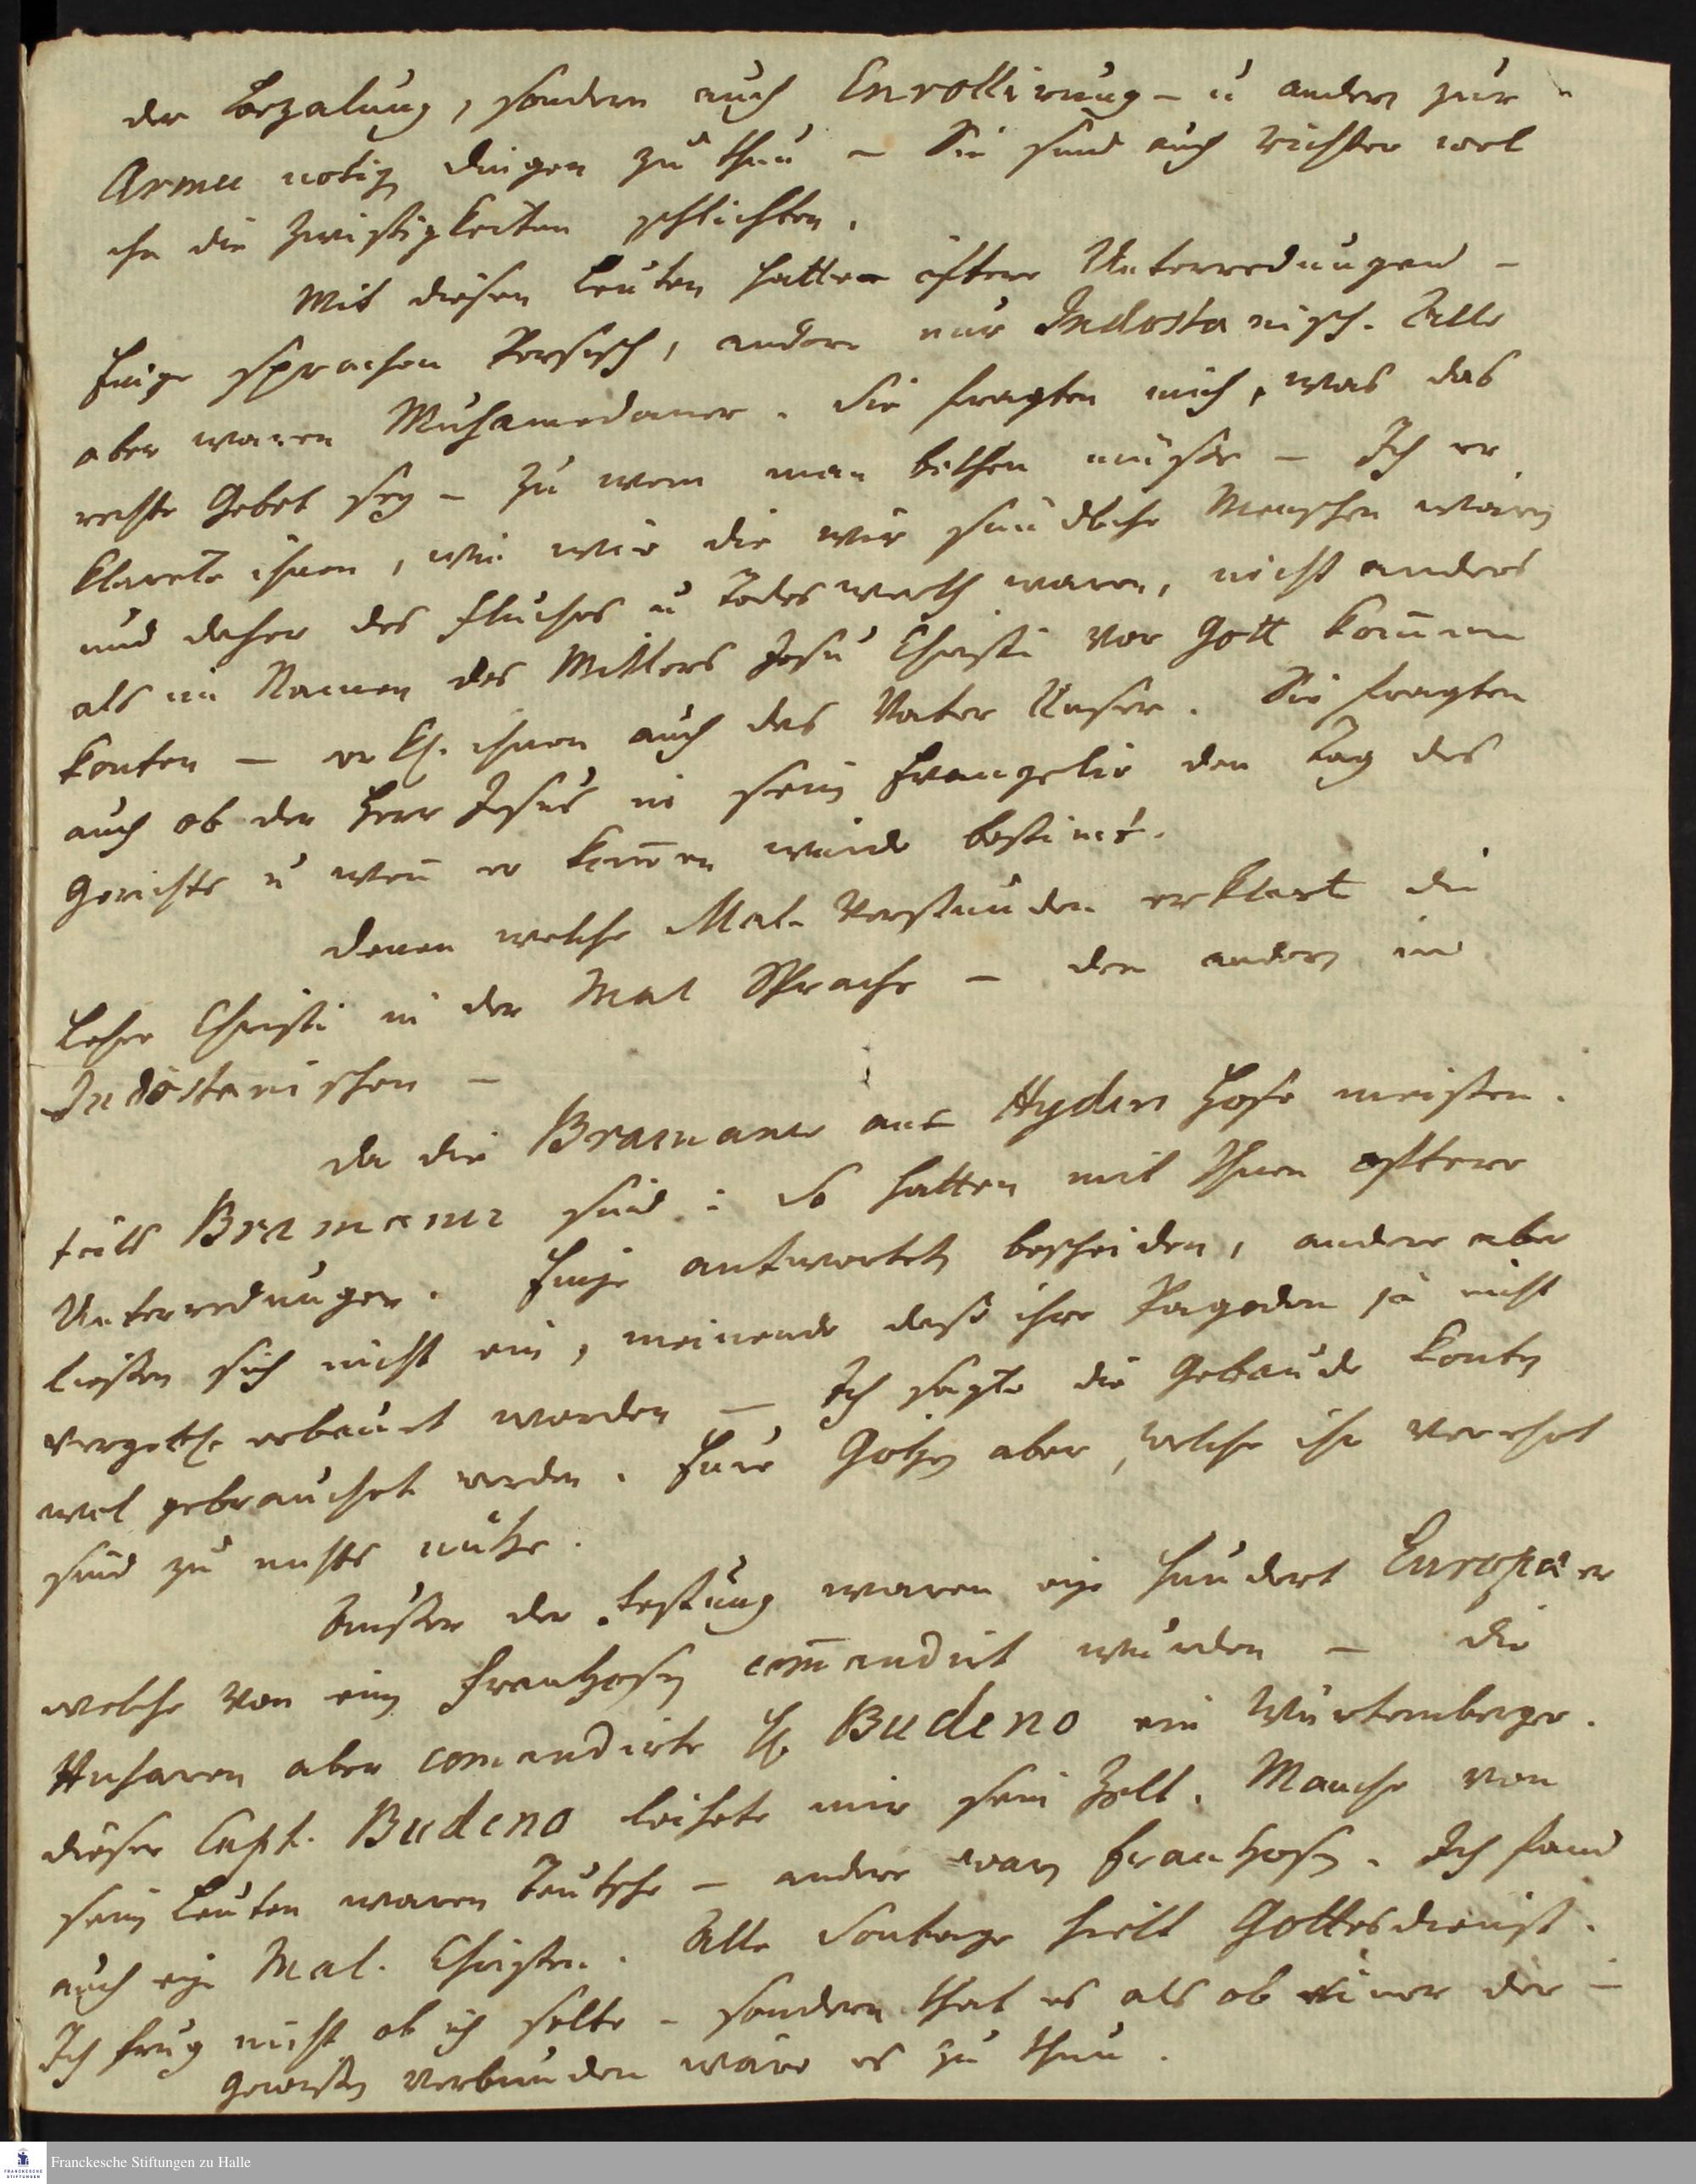 der Bezalung, sondern auch Enrollirung - u andern zur
Armee notig dingen zu thun - Sie sind auch richter wel
che die Zwistigkeiten schlichten.
Mit diesen Leuten hatte öftere Unterredungen -
Einige sprachen Persisch, andere nur Indostanisch. Alle
aber waren Muhamedaner. Sie fragten mich, was das
rechte Gebet sey - zu wem man bethen müsse - Ich er
klarete ihnen, wie wir die wir sündliche Menschen wären
und daher des Fluches u Todes werth waren, nicht anders
als im Namen des Mittlers Jesu Christi vor Gott kom̄en
konten - erkl. ihnen auch das Vater Unser. Sie fragten
auch ob der Herr Jesus in sein Evangelio den Tag des
Gerichts u wen̄ er kom̄en würde bestimt.
Denen welche Mal. verstunden erklart die
Lehre Christi in der Mal Sprache - den andern im
Indostanischen -
Da die Bramaner aus Hyders Hofe meisten
teils Bramaner sind: So hatten mit Ihnen oftere
Unterredungen. Einige antworteten bescheiden, andere aber
liessen sich nicht ein, meinende dass ihre Pagoden ja nicht
vergebl. erbauet worden - Ich sagte die Gebäude konten
wol gebrauchet werden. Eure Gotzen aber, welche ihr verehret
sind zu nichts nütze.
Ausser der Festung waren eige hundert Europäer
welche von ein Frantzosen com̄andirt wurden - die
Husaren aber comendirte H. Budeno ein Würtemberger.
dieser Capt. Budeno leihete mir sein Zelt. Manche von
sein Leuten waren Teutsche - andere waren Frantzosen. Ich fand
auch eige Mal. Christen. Alle Sontage hielt Gottesdienst.
Ich frug nicht ob ich solte - sondern that es als ob einer der im
Gewissen verbunden wäre es zu thun.
Franckesche Stiftungen zu Halle